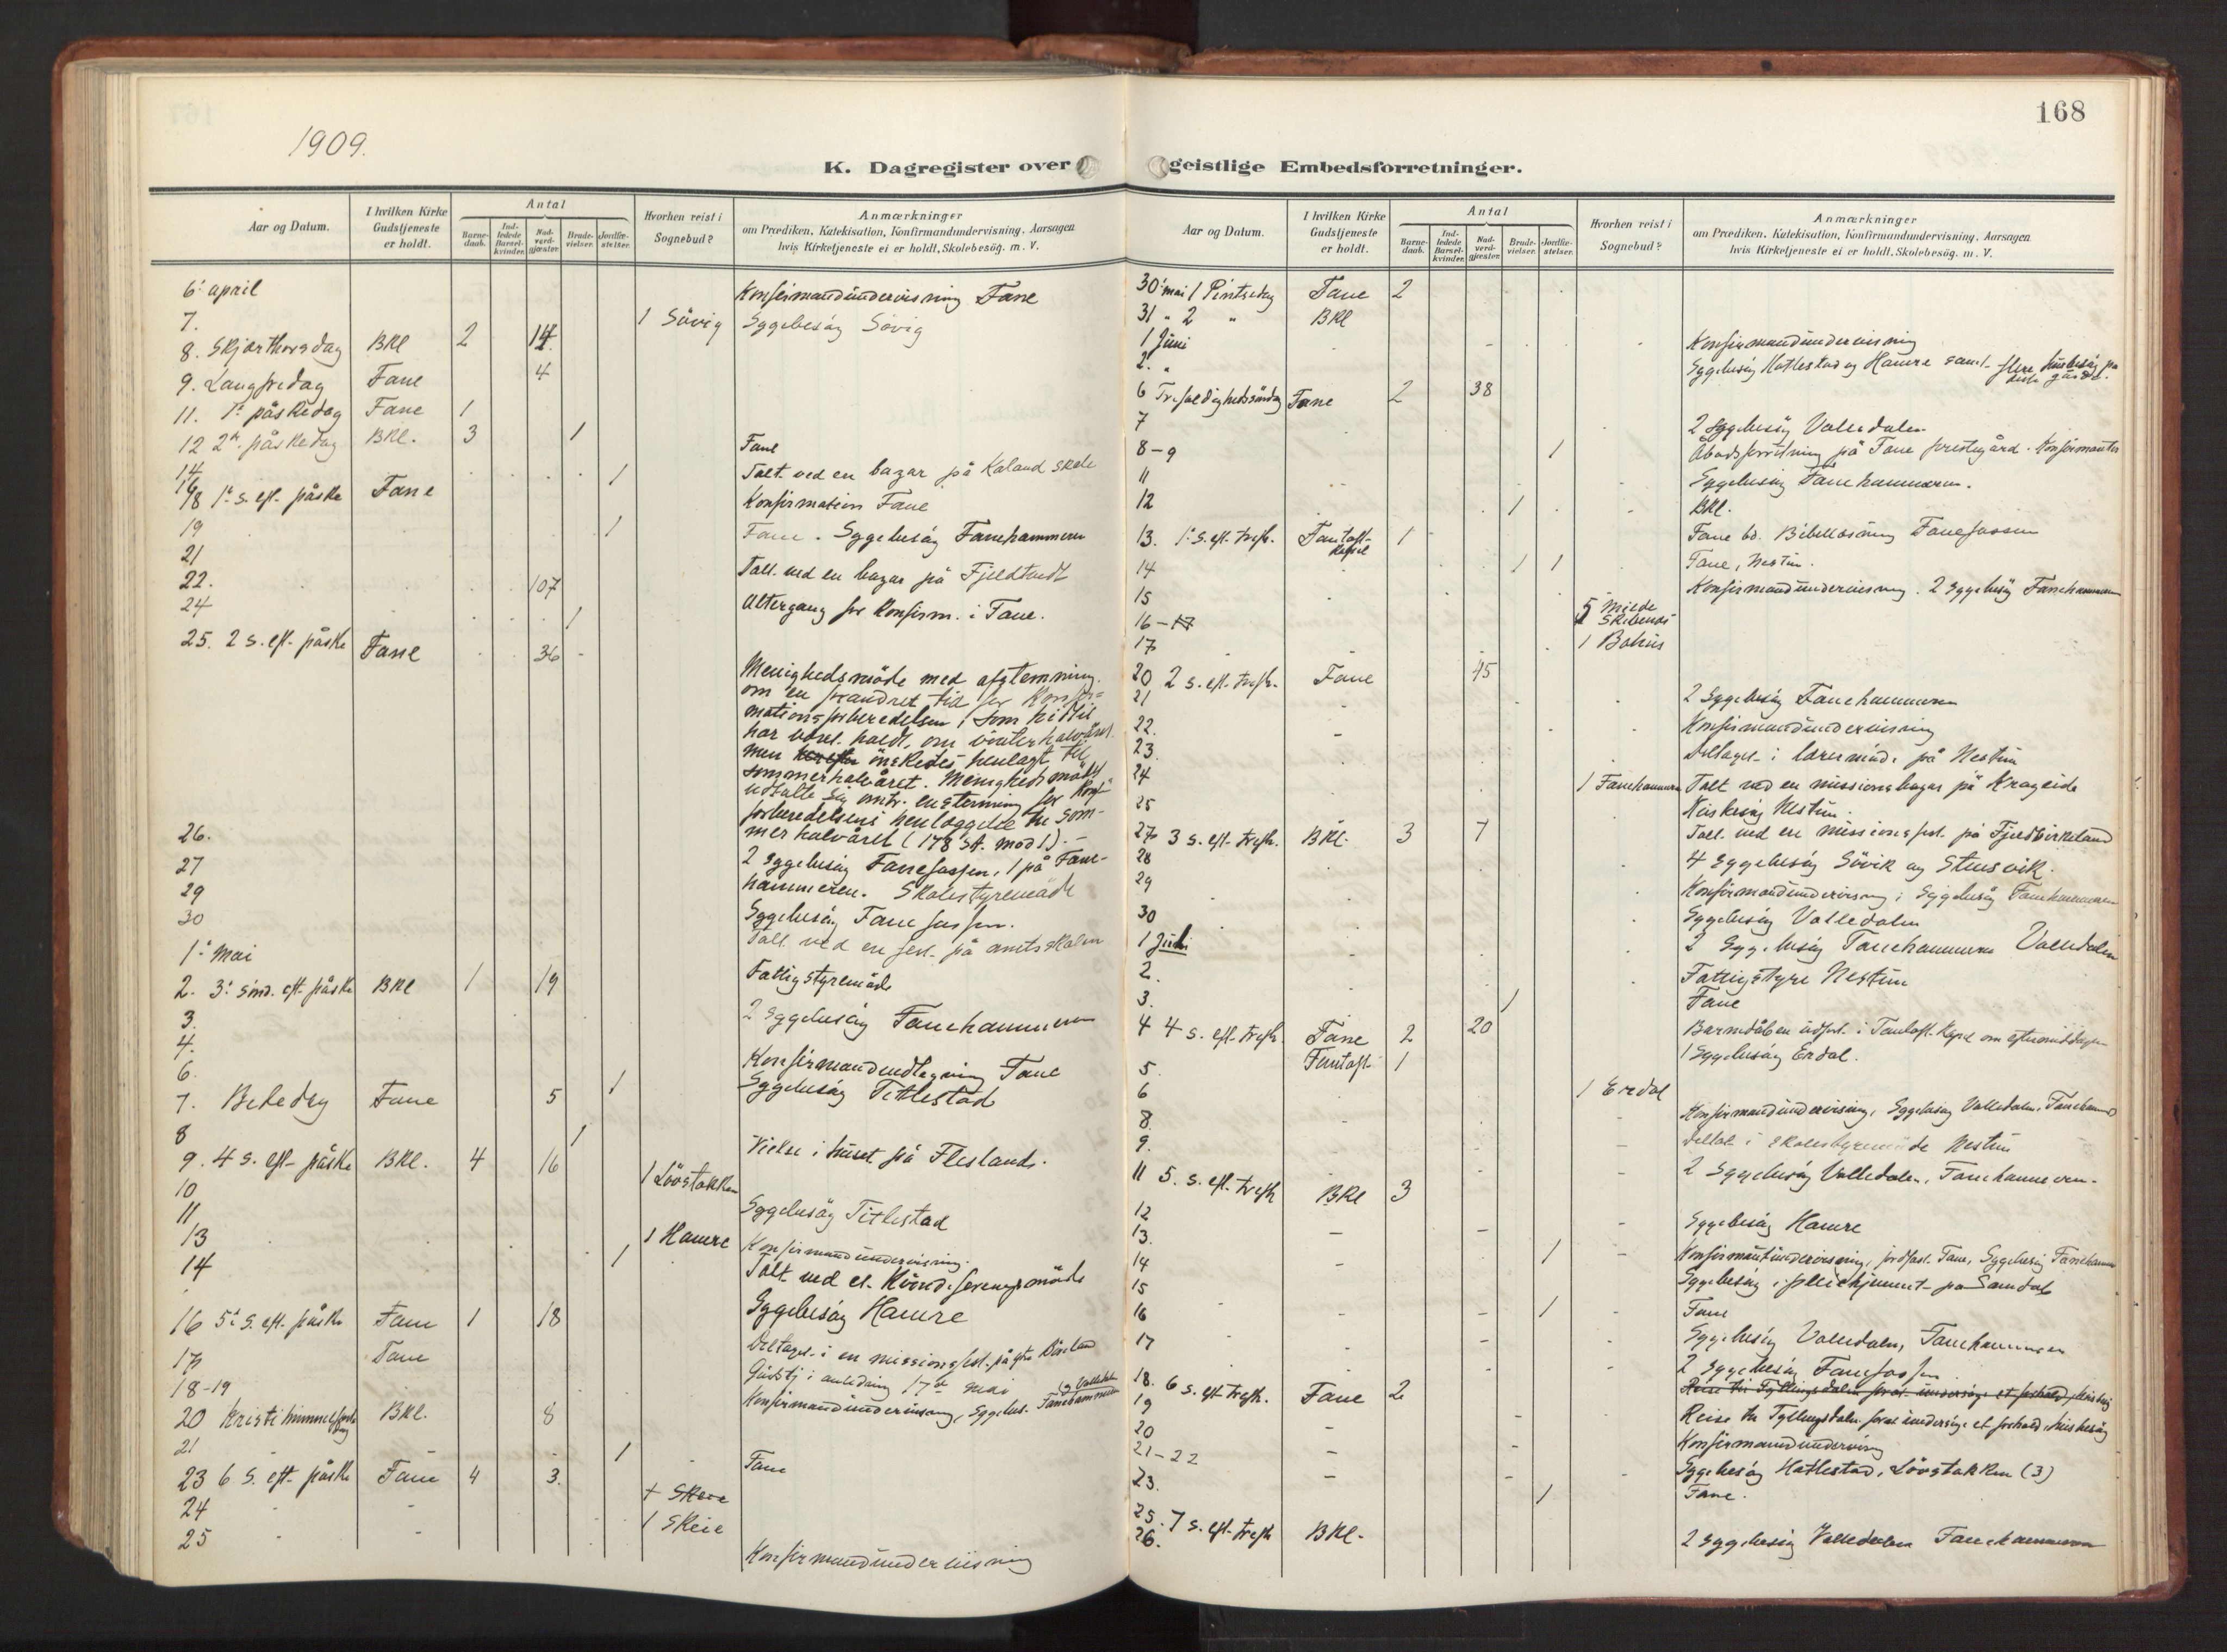 168
1909.
K. Dagregister over geistlige Embedsforretninger.
Aar og Datum.
I hvilken Kirke Gudstjeneste er holdt.
Antal
Barnedaab.
Indledede Barselkvinder.
Nadverdgjæster.
Brudevielser.
Jordfæstelser.
Hvorhen reist i Sognebud?
Anmærkninger
om Prædiken, Katekisation, Konfirmandundervisning, Aarsagen
hvis Kirketjeneste ei er holdt, Skolebesøg. m. V.
6 april Konfirmandundervisning Fane
7. 1 Sövig Sygebesög Sövig
8. Skjærthorsdag BKl 2 14
9. Langfredag Fane 4
11. 1ˢ påskedag Fane 1
12 2ⁿ påskedag BKl. 3 1
Fane
14 1 Talt ved en bazar på Kaland skole
16
18 1ˢ s. eft. påske Fane Konfirmation Fane
19 1 Fane. Sygebesög Fanehammeren
21 Talt ved en bazar på Fjeldtvedt
22. 107 Altergang for Konfirm. i Fane.
24 1
25. 2 s. eft. påske Fane 36
Menighedsmöde med afstemning
om en forandret tid for Konfir=
mationsforberedelsen, som hittil
har vært holdt om vinterhalvåret
men önskedes henlagt til
sommerhalvåret. Menighedsmödet
udtalte sig omtr. enstemmig for Konf-
forberedelsens henlæggelse til som-
mer halvåret (178 st. mod 1).-
26. 2 Sygebesög Fanefossen, 1 på Fane-
27 hammeren. Skolestyremöde
29 Sygebesög Fanefossen.
30 Talt ved en fest på amtsskolen
1ˢ Mai Fattigstyremöde
2. 3ˢ sönd. eft. påske BKl 1 19
3. 2 Sygebesög Fanehammeren
4. Konfirmandudtegning Fane
6. 1 Sygebesög Titlestad
7. Bededag Fane 5
8 1 Vielse i huset på Flesland.
9. 4 s. eft. påske BKl. 4 16
10 1 Lövstakken
11 Sygebesög Titlestad
13 1 Hamre Konfirmandundervisning.
14 1 Talt ved et Kvindeforeningsmöde
Sygebesög Hamre
16 5ˢ s. eft. påske Fane 1 18 Deltaget i en missionsfest på
17 Fane Gudstj i anledning 17de mai
18-19 Konfirmandundervisning, Sygebes. Fanehammeren og Valledalen
20 Kristi himmelfartsdag BKl. 8
21 1 Fane
23 6 s. eft. påske Fane 4 3.
24 + Skeie
25 1 Skeie
Konfirmandundervisning
Aar og Datum.
I hvilken Kirke Gudstjeneste er holdt.
Antal
Barnedaab.
Indledede Barselkvinder.
Nadverdgjæster.
Brudevielser.
Jordfæstelser.
Hvorhen reist i Sognebud?
Anmærkninger
om Prædiken, Katekisation, Konfirmandundervisning, Aarsagen
hvis Kirketjeneste ei er holdt, Skolebesøg. m. V.
30 mai 1 Pintsedag Fane 2
31 " 2 " BKl
1 Juni Konfirmandundervisning
2. " Sygebesög Hatlestad og Hamre samt flere husbesög på
6 Trefoldighedssöndag Fane 2 38
7 2 Sygebesög Valledalen
8-9 1 Åbodsforretning på Fane prestegård. Konfirmanter
11 Sygebesög Fanehammeren.
12 1 BKl.
13. 1ˢ s. eft. trefh. Fantoft Kapel 1 Fane bd. Bibellæsning Fanefossen
14 1 1 Fane, Nestun.
15 Konfirmandundervisning. 2 Sygebesög Fanehammeren
16-17 5 Milde Skibenæs
17 1 Bahus
20 2 s. eft. trefh. Fane 45
21 2 Sygebesög Fanehammeren
22. Konfirmandundervisning
23. Deltaget i lærermöde på Nestun
24 1 Fanehammeren Talt ved en missionsbazar på Krageide
25 Husbesög Nestun.
27 3 s. eft. trefh. BKl. 3 7 Talt ved en missionsfest på Fjeldbirkeland
28 4 Sygebesög Sövik og Stensvik.
29 Konfirmandundervisning; Sygebesög Fanehammeren
30 Sygebesög Valledalen
1 Juli 2 Sygebesög Fanehammeren Valledalen
2. Fattigstyre Nestun
3. 1 Fane
4 4 s. eft. trefh. Fane 2 20 Barnedåben udført i Fantoft Kapel om eftermiddagen
Fantoft 1
5. 1 Sygebesög Erdal.
6 1 Erdal
8. Konfirmandundervisning, Sygebesög Valledalen, Fanehammeren
9. Deltat i skolestyremöde Nestun
2 Sygebesög Valledalen, Fanehammeren.
11 5. s. eft. trefh BKl 3
12 Sygebesög Hamre
13. Konfirmantundervisning, jordfæst. Fane, Sygebesög Fanehammeren
14 1 Sygebesög i pleiehjemmet på Samdal
15
16 1 Fane
17 Sygebesög Valledalen, Fanehammeren
2 Sygebesög Fanefossen
18. 6 s. eft trefh. Fane 2
19 Reise til Fyllingsdalen forat undersöge et forhold, husbesög
20 Konfirmandundervisning
21-22 Sygebesög Hatlestad, Lövstakken (3)
23. 1 Fane.
25. 7 s. eft. trefh BKl.
26. 2 Sygebesög Valledalen Fanehammeren